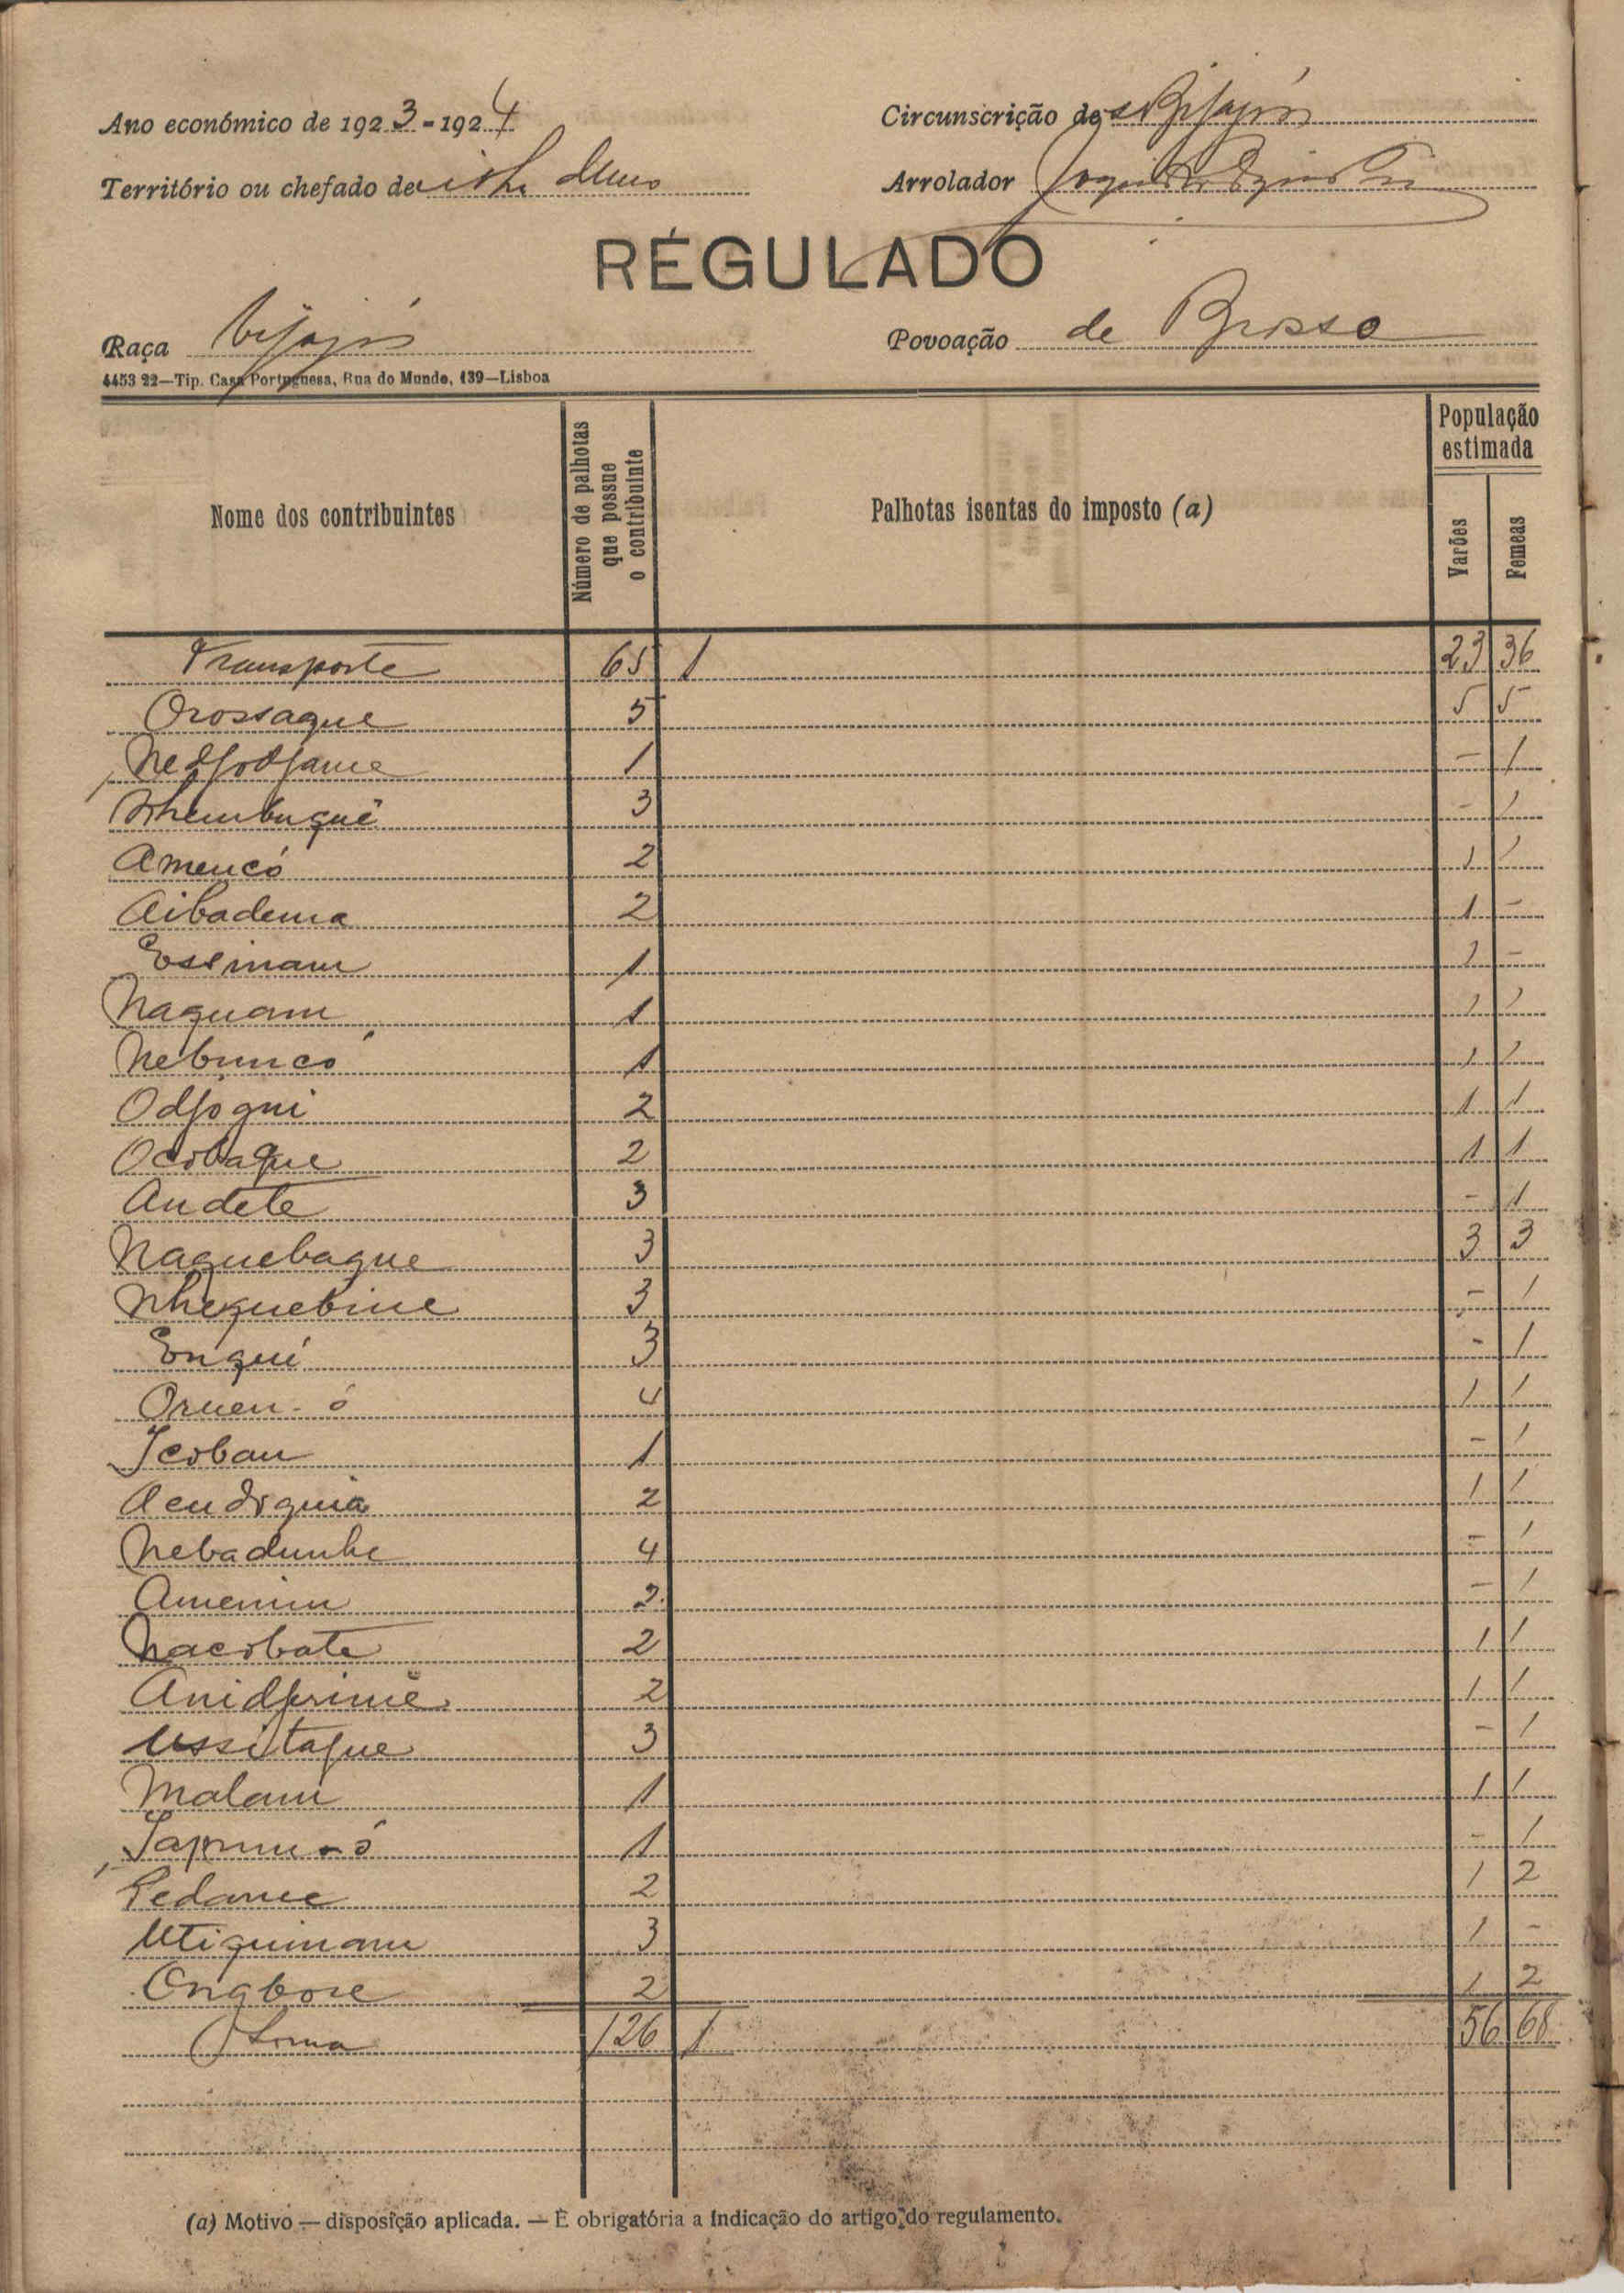 Ano económico de 1923-1924
Circunscrição dos Bijagós
Território ou chefado de
Arrolador
RÉGULADO
Raça bijagós
Povoação de Brosso
4453 22—Tip. Casa Portuguesa, Rua do Mundo, 139—Lisboa
Nome dos contribuintes
Número de palhotas que possue o contribuinte
Palhotas isentas do imposto (a)
População estimada
Varões
Femeas
Transporte 65 1 23 36
Orossaque 5 5 5
Nedjodjame 1 - 1
Nhembuquê 3 - 1
Amencó 2 1 1
Aibadema 2 1 -
Essinam 1 1 -
Naquam 1 1 1
Nebuncó 1 1 1
Odjoqui 2 1 1
Ocobaque 2 1 1
Andete 3 - 1
Naquebaque 3 3 3
Nhequebine 3 - 1
Enqui 3 - 1
Oruen-ó 4 1 1
Icoban 1 - 1
2 1 1
Nebadunhe 4 - 1
Amenim 2 - 1
Nacobate 2 1 1
2 1 1
3 - 1
Malam 1 1 1
1 - 1
Pedame 2 1 2
Utiquinam 3 1 -
Ongbose 2 1 2
Soma 126 1 56 68
(a) Motivo — disposição aplicada. — É obrigatória a indicação do artigo do regulamento.